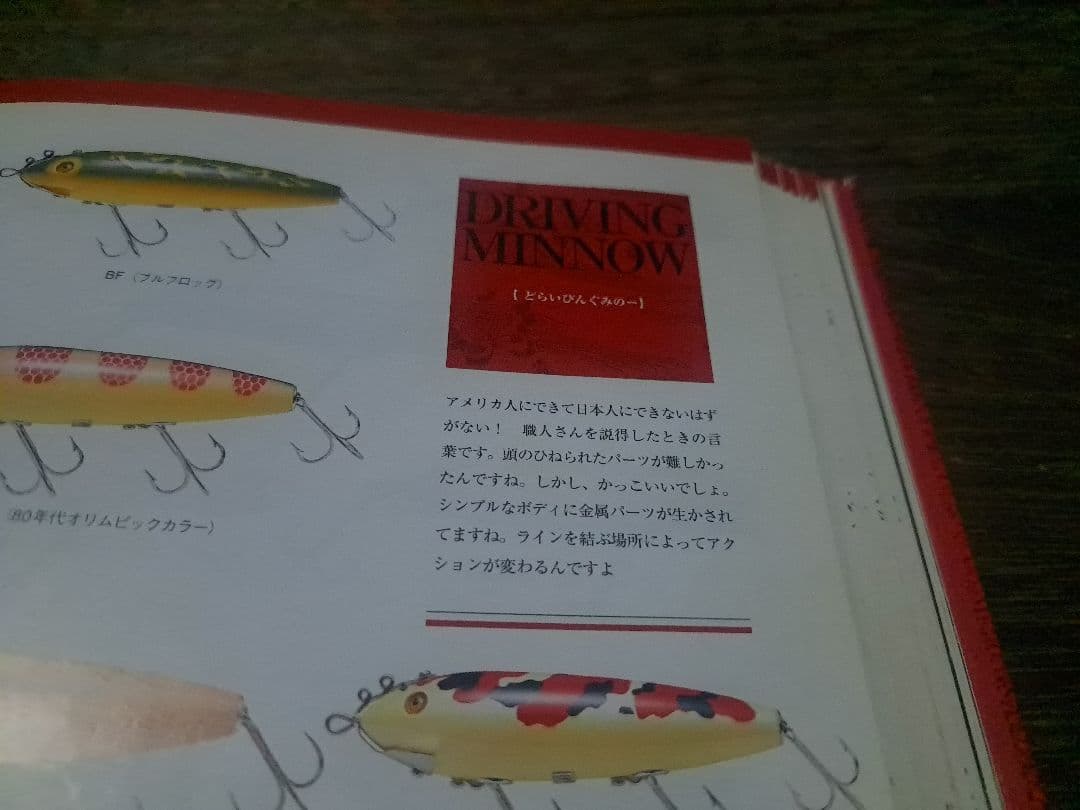 DRIVING
MINNOW
【どらいびんぐみのー】
BF（ブルフロッグ）
アメリカ人にできて日本人にできないはず
がない！　職人さんを説得したときの言
葉です。頭のひねられたパーツが難しかっ
たんですね。しかし、かっこいいでしょ。
シンプルなボディに金属パーツが生かされ
てますね。ラインを結ぶ場所によってアク
ションが変わるんですよ
80年代オリムピックカラー）